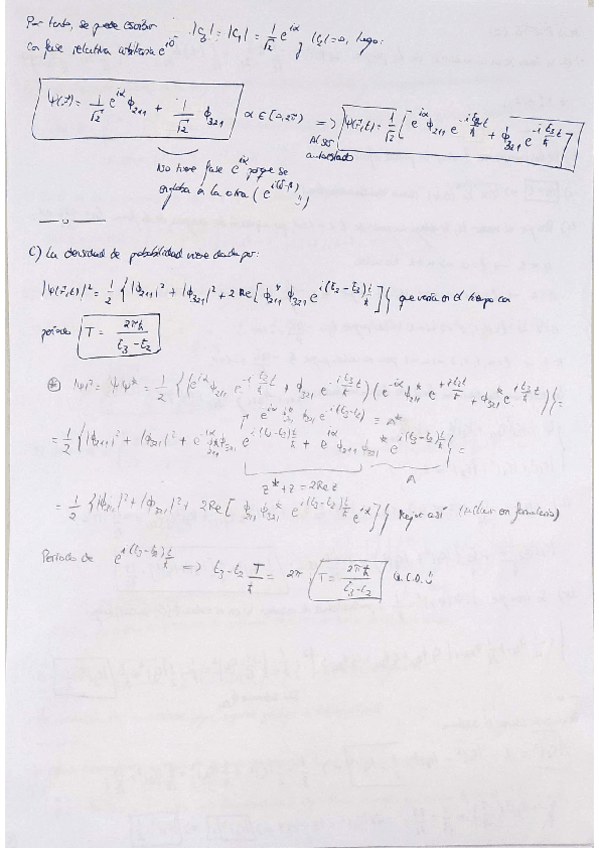 Por tanto, se puede escribir |C₃| = |C₁| = 1/√2 e^{iα} y |C₂| = 0, luego:
con fase relativa arbitraria e^{iδ}
Ψ(r⃗) = 1/√2 e^{iα} ϕ₂₁₁ + 1/√2 ϕ₃₂₁ α ∈ [0,2π) ⟹ Ψ(r⃗,t) = 1/√2 [e^{iα} ϕ₂₁₁ e^{-i E₂t/ħ} + ϕ₃₂₁ e^{-i E₃t/ħ}]
Al ser autoestado
No tiene fase e^{iα} porque se
engloba en la otra
C) La densidad de probabilidad viene dada por:
|Ψ(r⃗,t)|² = 1/2 { |ϕ₂₁₁|² + |ϕ₃₂₁|² + 2Re[ϕ₂₁₁* ϕ₃₂₁ e^{i(E₂-E₃)t/ħ}] } que varía en el tiempo con
periodo T = 2πħ/(E₃-E₂)
⊛ |Ψ|² = ΨΨ* = 1/2 { (e^{iα} ϕ₂₁₁ e^{-i E₂t/ħ} + ϕ₃₂₁ e^{-i E₃t/ħ}) (e^{-iα} ϕ₂₁₁* e^{+i E₂t/ħ} + ϕ₃₂₁* e^{+i E₃t/ħ}) } =
= 1/2 { |ϕ₂₁₁|² + |ϕ₃₂₁|² + e^{-iα} ϕ₂₁₁* ϕ₃₂₁ e^{i(E₂-E₃)t/ħ} + e^{iα} ϕ₂₁₁ ϕ₃₂₁* e^{i(E₃-E₂)t/ħ} } =
z* + z = 2Re z A
= 1/2 { |ϕ₂₁₁|² + |ϕ₃₂₁|² + 2Re[ϕ₂₁₁ ϕ₃₂₁* e^{i(E₃-E₂)t/ħ} e^{iα}] } Mejor así (incluir en formulario)
Periodo de e^{i(E₃-E₂)t/ħ} ⟹ E₃-E₂ T/ħ = 2π T = 2πħ/(E₃-E₂) Q.C.D.